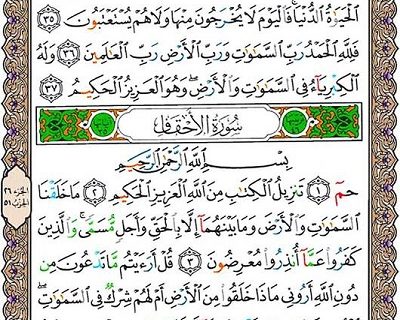 ٱلْحَيَوٰةُ ٱلدُّنْيَا ۚ فَٱلْيَوْمَ لَا يُخْرَجُونَ مِنْهَا وَلَا هُمْ يُسْتَعْتَبُونَ ٣٥
فَلِلَّهِ ٱلْحَمْدُ رَبِّ ٱلسَّمَٰوَٰتِ وَرَبِّ ٱلْأَرْضِ رَبِّ ٱلْعَٰلَمِينَ ٣٦ وَلَهُ
ٱلْكِبْرِيَآءُ فِى ٱلسَّمَٰوَٰتِ وَٱلْأَرْضِ ۖ وَهُوَ ٱلْعَزِيزُ ٱلْحَكِيمُ ٣٧
سُورَةُ ٱلْأَحْقَافِ
بِسْمِ ٱللَّهِ ٱلرَّحْمَٰنِ ٱلرَّحِيمِ
حمٓ ١ تَنزِيلُ ٱلْكِتَٰبِ مِنَ ٱللَّهِ ٱلْعَزِيزِ ٱلْحَكِيمِ ٢ مَا خَلَقْنَا
ٱلسَّمَٰوَٰتِ وَٱلْأَرْضَ وَمَا بَيْنَهُمَآ إِلَّا بِٱلْحَقِّ وَأَجَلٍ مُّسَمًّى ۚ وَٱلَّذِينَ
كَفَرُوا۟ عَمَّآ أُنذِرُوا۟ مُعْرِضُونَ ٣ قُلْ أَرَءَيْتُم مَّا تَدْعُونَ مِن
دُونِ ٱللَّهِ أَرُونِى مَاذَا خَلَقُوا۟ مِنَ ٱلْأَرْضِ أَمْ لَهُمْ شِرْكٌ فِى ٱلسَّمَٰوَٰتِ ۖ
الجزء ٢٦
الحزب ٥١